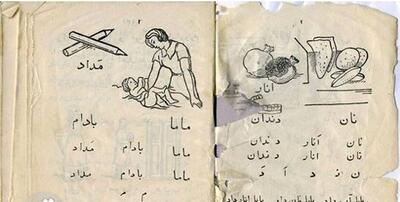 ۲
انار
نان دندان
نان انار دندان
نان انار دندان
ن د ا
۳
مداد
ماما بادام
ماما بادام مداد
ماما بادام مداد
م م